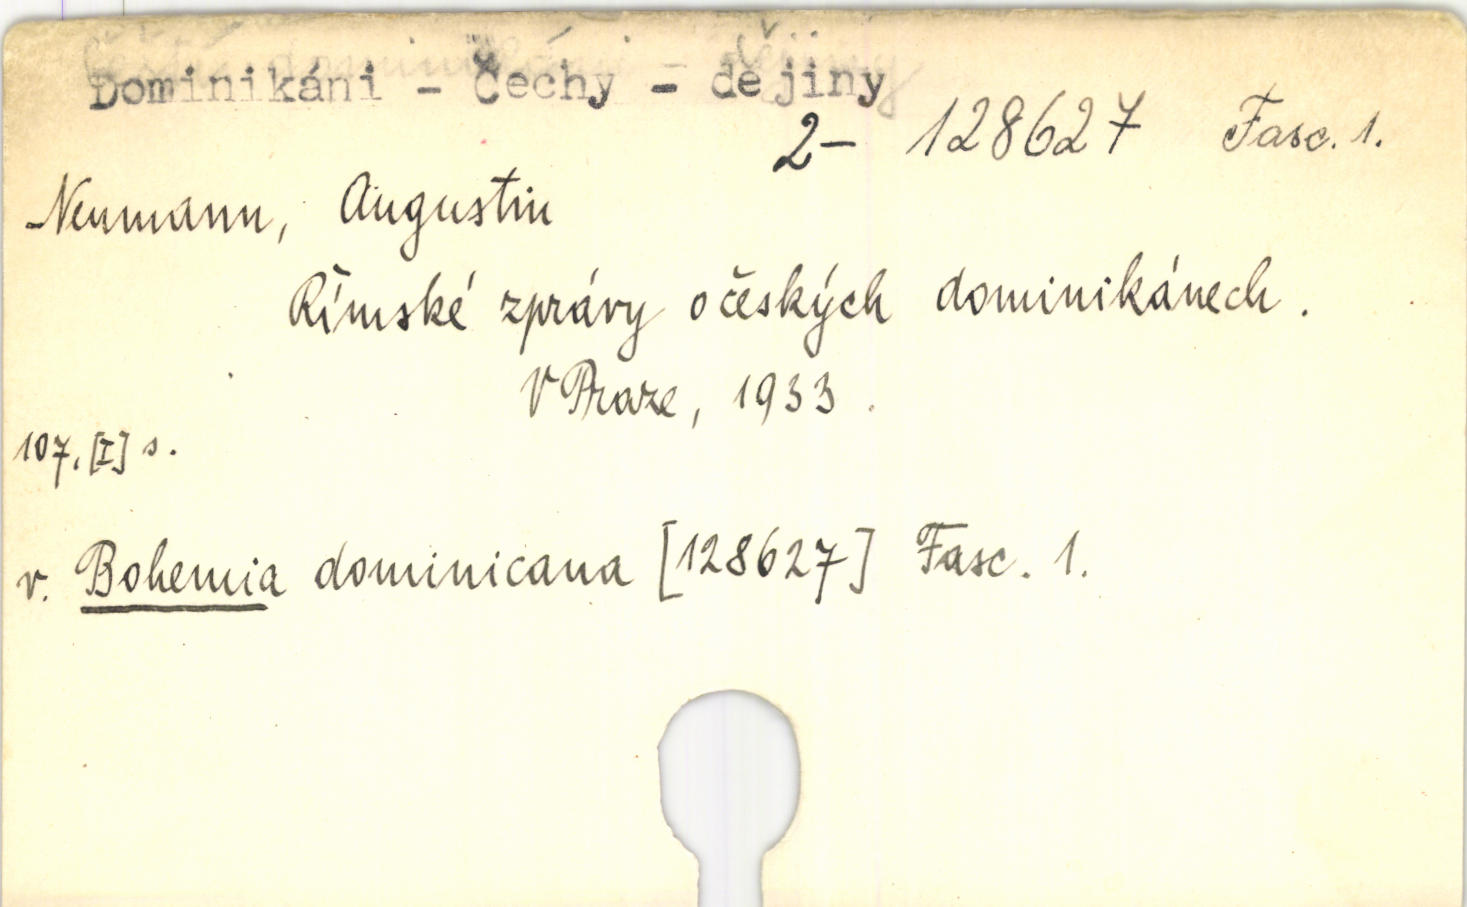 Dominikáni - Čechy - dějiny
2- 128627 Fasc. 1.
Neumann, Augustin
Římské zprávy o českých dominikánech.
V Praze, 1933.
107, [I] s.
v. Bohemia dominicana [128627] Fasc. 1.